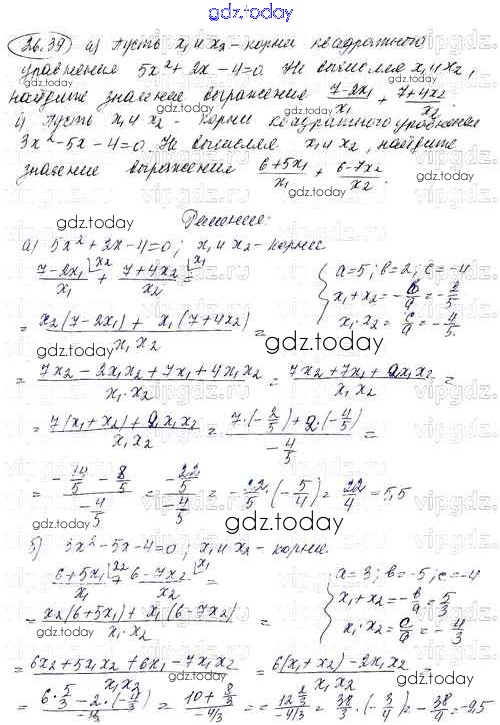 gdz.today
26.39 а) Пусть x₁ и x₂ - корни квадратного
уравнения 5x² + 2x - 4 = 0. Не вычисляя x₁ и x₂,
найдите значение выражения (7-2x₁)/x₁ + (7+4x₂)/x₂.
б) Пусть x₁ и x₂ - корни квадратного уравнения
3x² - 5x - 4 = 0. Не вычисляя x₁ и x₂, найдите
значение выражения (6+5x₁)/x₁ + (6-7x₂)/x₂.
gdz.today
gdz.today
Решение:
а) 5x² + 2x - 4 = 0; x₁ и x₂ - корни
(7-2x₁)/x₁ |x₂ + (7+4x₂)/x₂ |x₁ =
{ a=5; b=2; c=-4
x₁+x₂ = -b/a = -2/5
x₁·x₂ = c/a = -4/5.
= (x₂(7-2x₁) + x₁(7+4x₂))/(x₁x₂) =
gdz.today
gdz.today
= (7x₂ - 2x₁x₂ + 7x₁ + 4x₁x₂)/(x₁·x₂) = (7x₂ + 7x₁ + 2x₁x₂)/(x₁x₂) =
= (7(x₁+x₂) + 2x₁x₂)/(x₁x₂) = (7·(-2/5) + 2·(-4/5))/(-4/5) =
= (-14/5 - 8/5)/(-4/5) = (-22/5)/(-4/5) = -22/5·(-5/4) = 22/4 = 5,5
gdz.today
gdz.today
б) 3x² - 5x - 4 = 0; x₁ и x₂ - корни
(6+5x₁)/x₁ |x₂ + (6-7x₂)/x₂ |x₁ =
{ a=3; b=-5; c=-4
x₁+x₂ = -b/a = 5/3
x₁·x₂ = c/a = -4/3
= (x₂(6+5x₁) + x₁(6-7x₂))/(x₁·x₂) =
gdz.today
gdz.today
= (6x₂ + 5x₁x₂ + 6x₁ - 7x₁x₂)/(x₁x₂) = (6(x₁+x₂) - 2x₁x₂)/(x₁x₂) =
= (6·5/3 - 2·(-4/3))/(-4/3) = (10 + 8/3)/(-4/3) = (12 2/3)/(-4/3) = 38/3·(-3/4) = -38/4 = -9,5
gdz.today